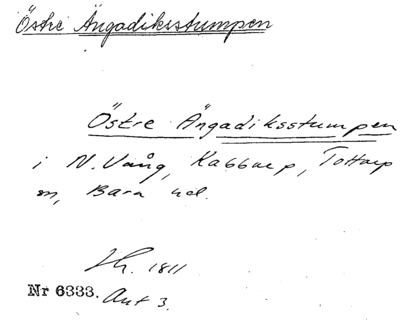 Östre Ängadiksstumpen
Östre Ängadiksstumpen
i N. Vång, Kabbarp, Tottarp
sn, Bara hd.
Lh. 1811
Nr 6333. Akt 3.